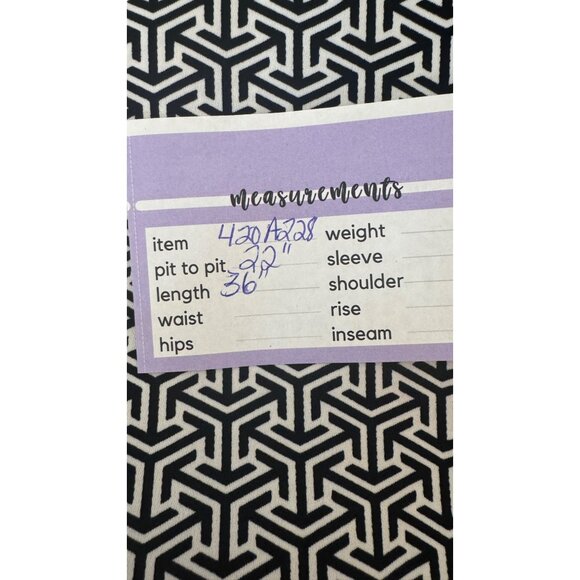 measurements
item 420A2228 weight
pit to pit 22" sleeve
length 36" shoulder
waist rise
hips inseam